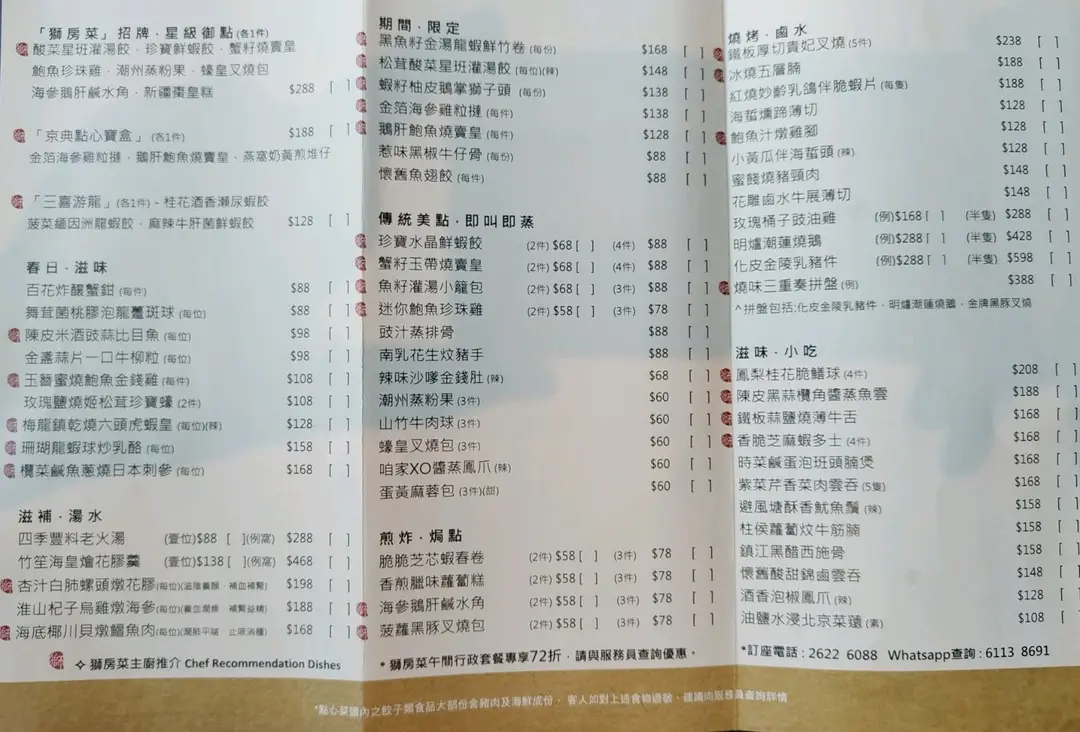 「獅房菜」招牌．星級御點(各1件)
酸菜星班灌湯餃．珍寶鮮蝦餃．蟹籽燒賣皇
鮑魚珍珠雞．潮州蒸粉果．蠔皇叉燒包
海參鵝肝鹹水角．新疆棗皇糕 $288 [ ]
「京典點心寶盒」(各1件) $188 [ ]
金箔海參雞粒撻．鵝肝鮑魚燒賣皇．燕窩奶黃煎堆仔
「三喜游龍」(各1件) - 桂花酒香瀨尿蝦餃
菠菜緬因洲龍蝦餃．麻辣牛肝菌鮮蝦餃 $128 [ ]
春日．滋味
百花炸釀蟹鉗 (每件) $88 [ ]
舞茸菌桃膠泡龍躉斑球 (每位) $88 [ ]
陳皮米酒豉蒜比目魚 (每位) $98 [ ]
金盞蒜片一口牛柳粒 (每位) $98 [ ]
玉簪蜜燒鮑魚金錢雞 (每件) $108 [ ]
玫瑰鹽燒姬松茸珍寶蠔 (2件) $108 [ ]
梅龍鎮乾燒六頭虎蝦皇 (每位)(辣) $128 [ ]
珊瑚龍蝦球炒乳酪 (每位) $158 [ ]
欖菜鹹魚蔥燒日本刺參 (每位) $168 [ ]
滋補．湯水
四季豐料老火湯 (壹位)$88 [ ](例窩) $288 [ ]
竹笙海皇燴花膠羹 (壹位)$138 [ ](例窩) $468 [ ]
杏汁白肺螺頭燉花膠(每位)(滋陰養顏．補血補腎) $198 [ ]
淮山杞子烏雞燉海參(每位)(養血潤燥．補腎益精) $188 [ ]
海底椰川貝燉鱷魚肉(每位)(潤肺平喘．止咳消腫) $168 [ ]
✧ 獅房菜主廚推介 Chef Recommendation Dishes
期間．限定
黑魚籽金湯龍蝦鮮竹卷 (每份) $168 [ ]
松茸酸菜星班灌湯餃 (每位)(辣) $148 [ ]
蝦籽柚皮鵝掌獅子頭 (每份) $138 [ ]
金箔海參雞粒撻 (每件) $138 [ ]
鵝肝鮑魚燒賣皇 (每件) $128 [ ]
惹味黑椒牛仔骨 (每份) $88 [ ]
懷舊魚翅餃 (每件) $88 [ ]
傳統美點．即叫即蒸
珍寶水晶鮮蝦餃 (2件) $68 [ ] (4件) $88 [ ]
蟹籽玉帶燒賣皇 (2件) $68 [ ] (4件) $88 [ ]
魚籽灌湯小籠包 (2件) $68 [ ] (3件) $88 [ ]
迷你鮑魚珍珠雞 (2件) $58 [ ] (3件) $78 [ ]
豉汁蒸排骨 $88 [ ]
南乳花生炆豬手 $88 [ ]
辣味沙嗲金錢肚 (辣) $68 [ ]
潮州蒸粉果 (3件) $60 [ ]
山竹牛肉球 (3件) $60 [ ]
蠔皇叉燒包 (3件) $60 [ ]
咱家XO醬蒸鳳爪 (辣) $60 [ ]
蛋黃麻蓉包 (3件)(甜) $60 [ ]
煎炸．焗點
脆脆芝芯蝦春卷 (2件) $58 [ ] (3件) $78 [ ]
香煎臘味蘿蔔糕 (2件) $58 [ ] (3件) $78 [ ]
海參鵝肝鹹水角 (2件) $58 [ ] (3件) $78 [ ]
菠蘿黑豚叉燒包 (2件) $58 [ ] (3件) $78 [ ]
* 獅房菜午間行政套餐專享72折，請與服務員查詢優惠。
燒烤．鹵水
鐵板厚切貴妃叉燒 (5件) $238 [ ]
冰燒五層腩 $188 [ ]
紅燒妙齡乳鴿伴脆蝦片 (每隻) $188 [ ]
海蜇燻蹄薄切 $128 [ ]
鮑魚汁燉雞腳 $128 [ ]
小黃瓜伴海蜇頭 (辣) $128 [ ]
蜜餞燒豬頸肉 $148 [ ]
花雕鹵水牛展薄切 $148 [ ]
玫瑰桶子豉油雞 (例)$168 [ ] (半隻) $288 [ ]
明爐潮蓮燒鵝 (例)$288 [ ] (半隻) $428 [ ]
化皮金陵乳豬件 (例)$288 [ ] (半隻) $598 [ ]
燒味三重奏拼盤 (例) $388 [ ]
^拼盤包括:化皮金陵乳豬件．明爐潮蓮燒鵝．金牌黑豚叉燒
滋味．小吃
鳳梨桂花脆鱔球 (4件) $208 [ ]
陳皮黑蒜欖角醬蒸魚雲 $188 [ ]
鐵板蒜鹽燒薄牛舌 $168 [ ]
香脆芝麻蝦多士 (4件) $168 [ ]
時菜鹹蛋泡班頭腩煲 $168 [ ]
紫菜芹香菜肉雲吞 (5隻) $168 [ ]
避風塘酥香魷魚鬚 (辣) $158 [ ]
柱侯蘿蔔炆牛筋腩 $158 [ ]
鎮江黑醋西施骨 $158 [ ]
懷舊酸甜錦鹵雲吞 $148 [ ]
酒香泡椒鳳爪 (辣) $128 [ ]
油鹽水浸北京菜薳 (素) $108 [ ]
*訂座電話 : 2622 6088 Whatsapp查詢 : 6113 8691
*點心菜譜內之餃子類食品大部份含豬肉及海鮮成份，客人如對上述食物過敏，建議向服務員查詢詳情